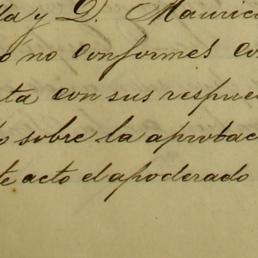 lla y D. Mauric
o no conformes co
ta con sus respue
o sobre la aprobac
te acto el apoderado